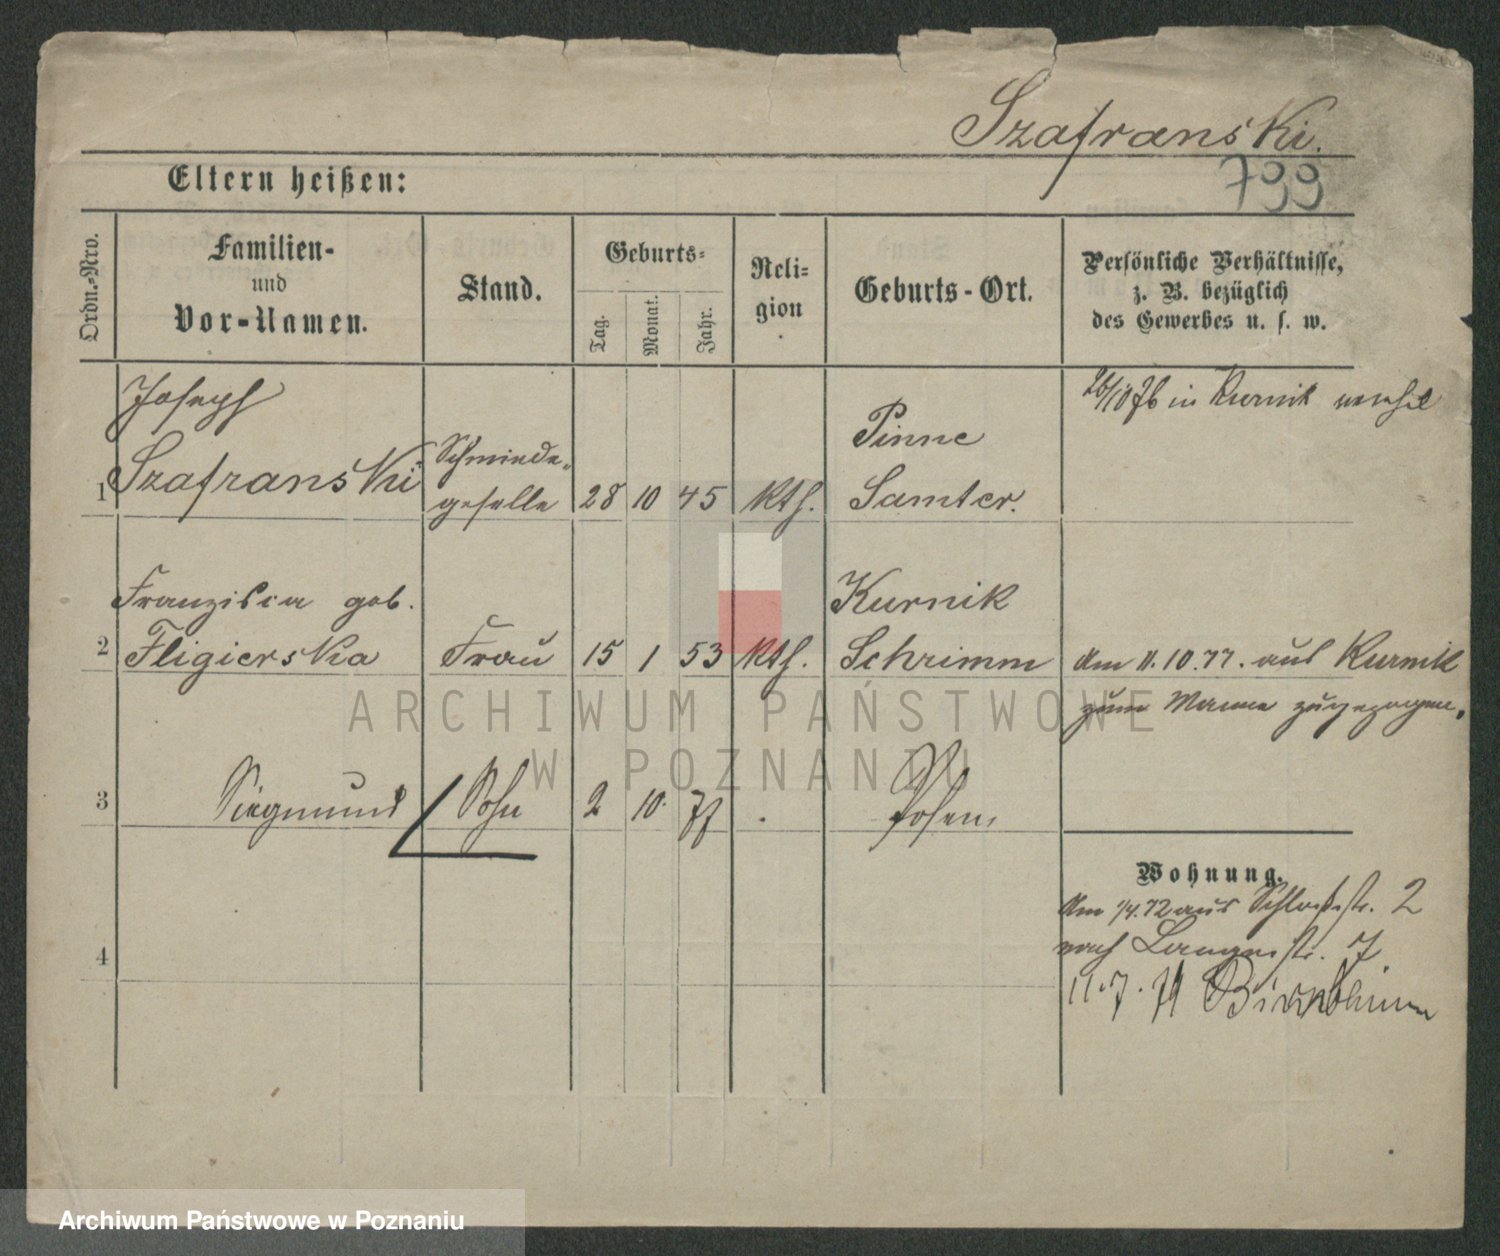 Szafranski.
799
Eltern heißen:
Ordn.-Nro.
Familien-
und
Vor-Namen.
Stand.
Geburts-
Tag.
Monat.
Jahr.
Reli-
gion
Geburts-Ort.
Persönliche Verhältnisse,
z. B. bezüglich
des Gewerbes u. s. w.
Joseph
1 Szafranski
Schmiede-
geselle
28 10 45 kth.
Pinne
Samter.
26/10 76 in Kurnik
Franziska geb.
2 Fligierska
Frau
15 1 53 kth.
Kurnik
Schrimm
Am 11.10.77. aus Kurnik
zum Manne zugezogen.
3 Siegmund Sohn 2 10. 77 . Posen,
4
Wohnung.
Am 1/4.72 aus Schloßstr. 2
nach Langestr. 7
11.7. Birnbaum
ARCHIWUM PAŃSTWOWE
W POZNANIU
Archiwum Państwowe w Poznaniu